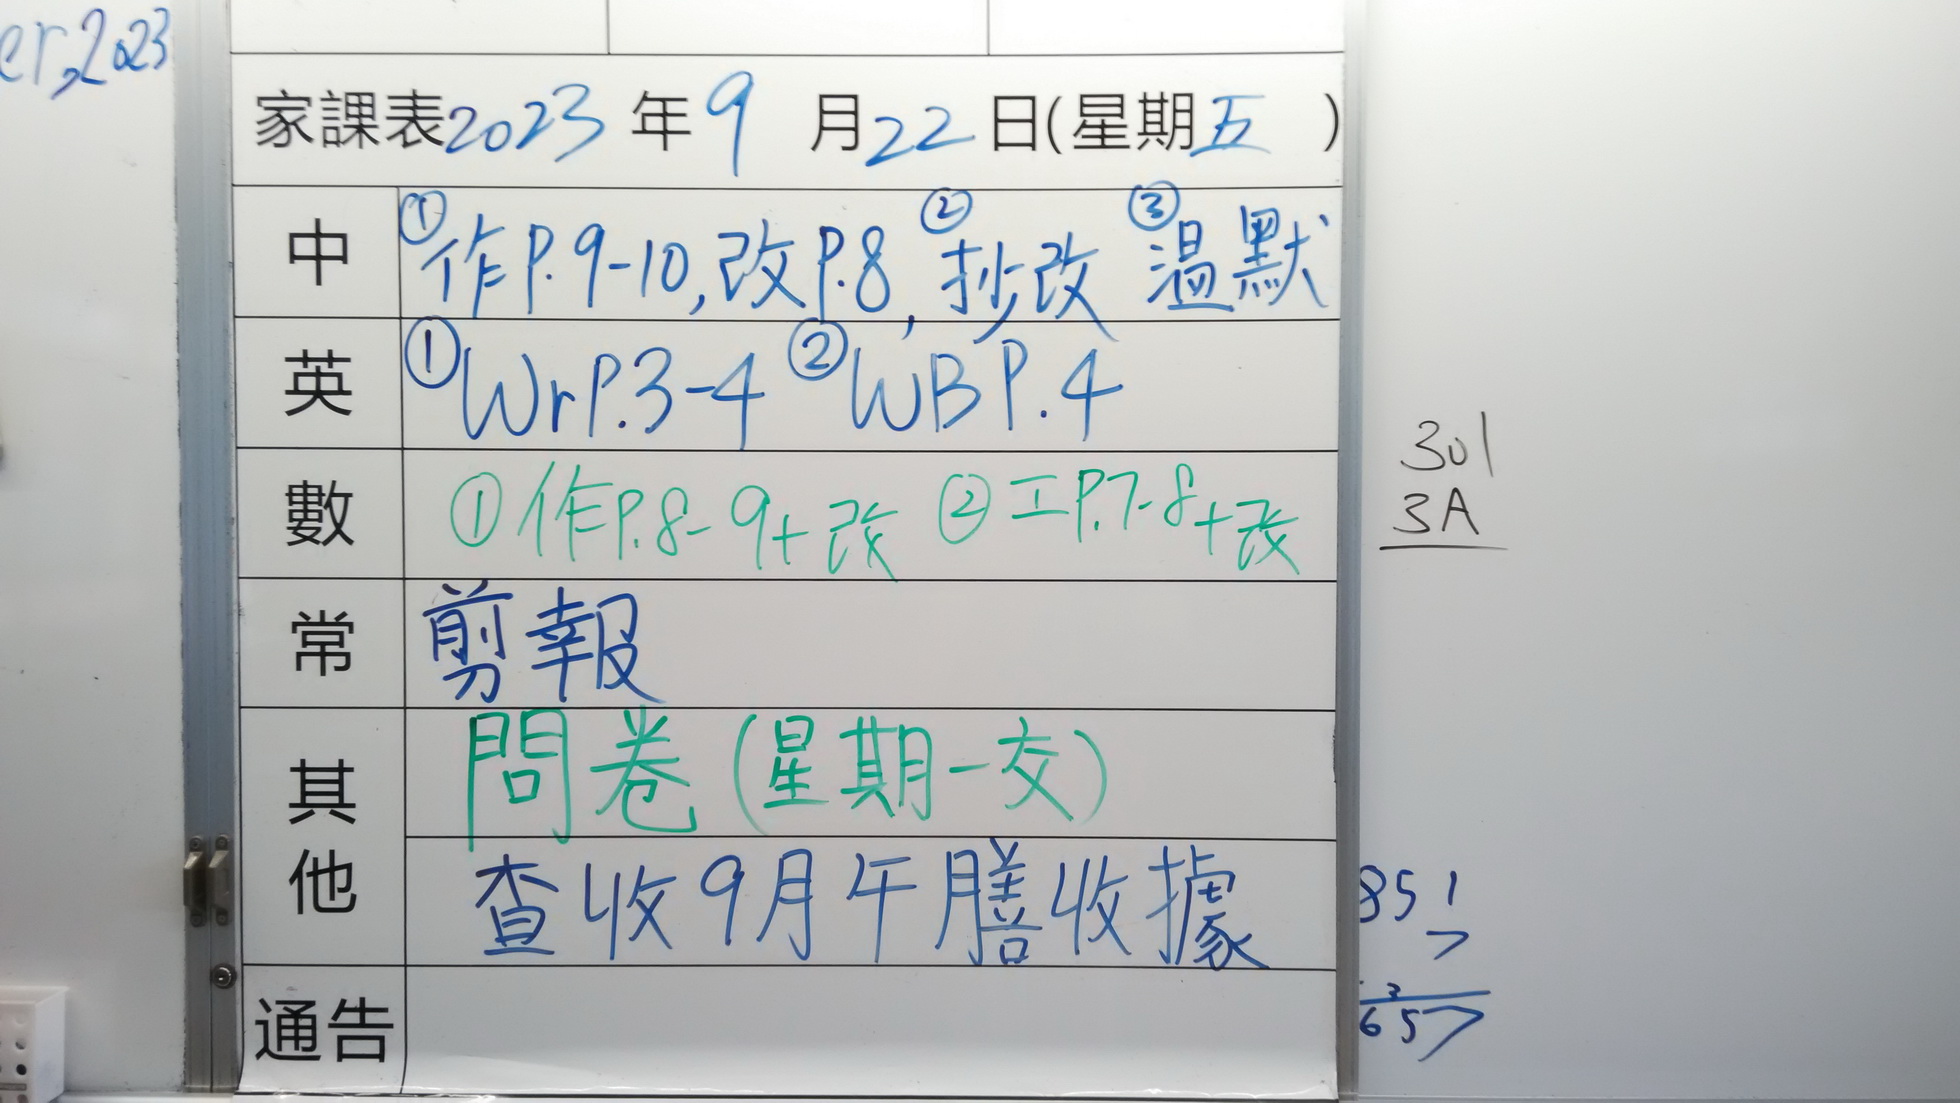 er,2023
家課表2023年9月22日(星期五)
中 ①作P.9-10,改P.8, ②抄改 ③溫默
英 ①WrP.3-4 ②WBP.4
數 ①作P.8-9+改 ②工P.7-8+改
常 剪報
其他 問卷(星期一交)
查收9月午膳收據
通告
301
3A
851
7
3
657